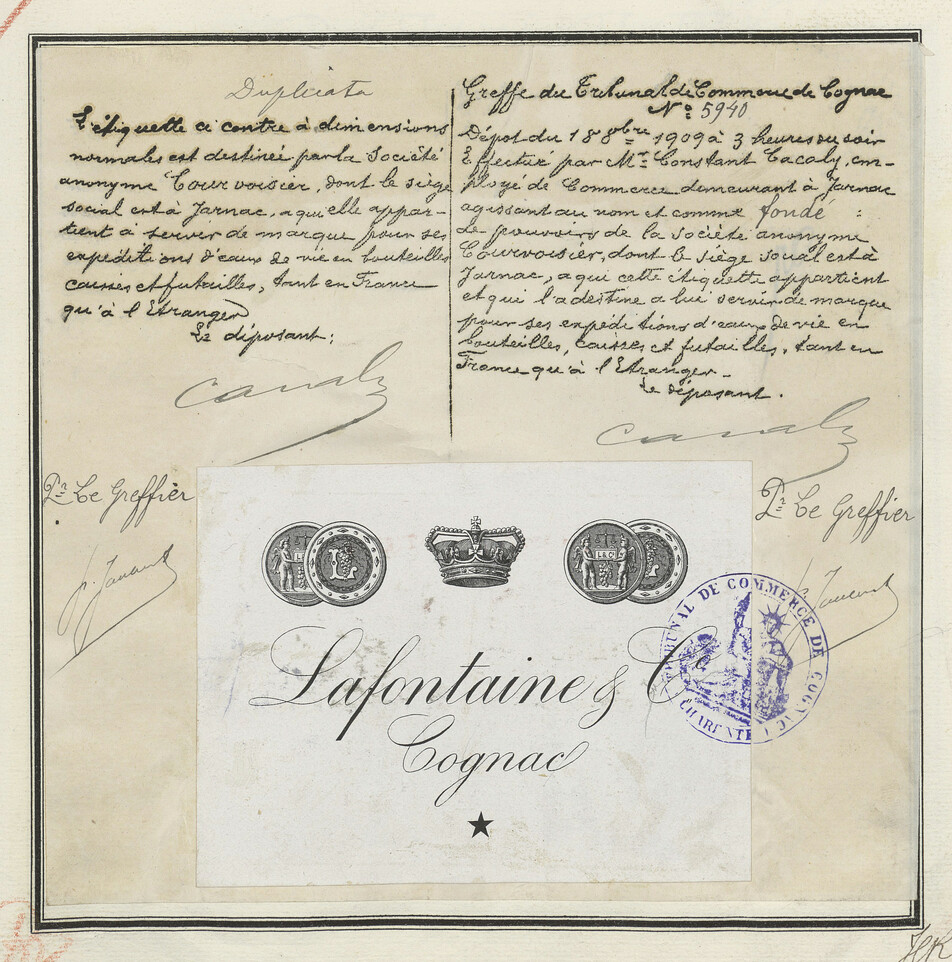 Duplicata
L'étiquette ci contre à dimensions
normales est destinée par la Société
anonyme Courvoisier, dont le siège
social est à Jarnac, a qui elle appar-
tient à servir de marque pour ses
expéditions d'eaux de vie en bouteilles
caisses et futailles, tant en France
qu'à l'Etranger
Le déposant:
Pr Le Greffier
Greffe du Tribunal de Commerce de Cognac
No: 5940
Dépot du 18 8bre 1909 à 3 heures du soir
Effectué par Mr Constant Cacaly, em-
ployé de Commerce demeurant à Jarnac
agissant au nom et comme fondé :
de pouvoirs de la Société anonyme
Courvoisier, dont le siège social est à
Jarnac, a qui cette étiquette appartient
et qui l'a destine a lui servir de marque
pour ses expéditions d'eaux de vie en
bouteilles, caisses et futailles, tant en
France qu'à l'Etranger.
Le déposant.
Pr Le Greffier
L
L & Co
Lafontaine & Co
Cognac
TRIBUNAL DE COMMERCE DE COGNAC
CHARENTE